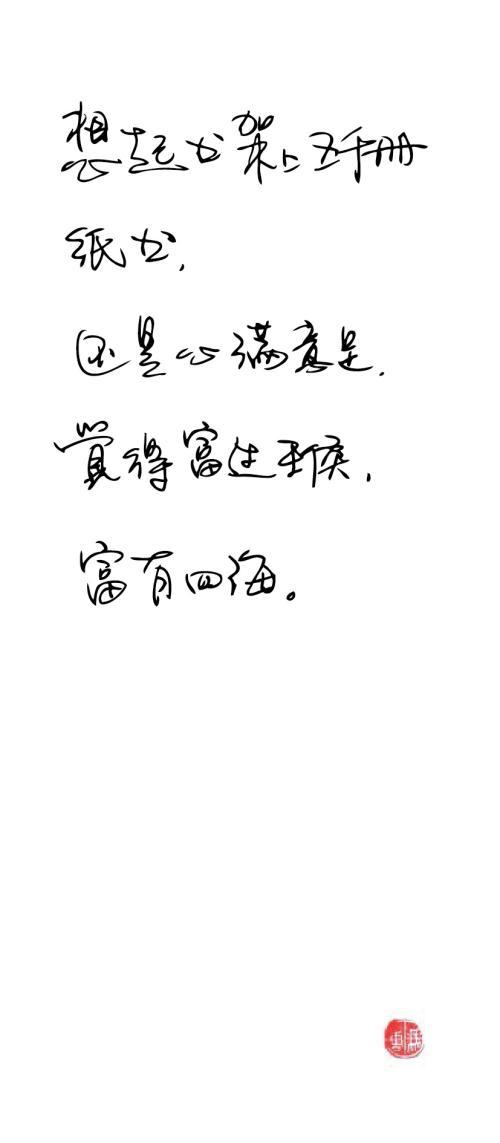 想起书架上五千册
纸书,
还是心满意足.
覺得富过王侯,
富有四海。